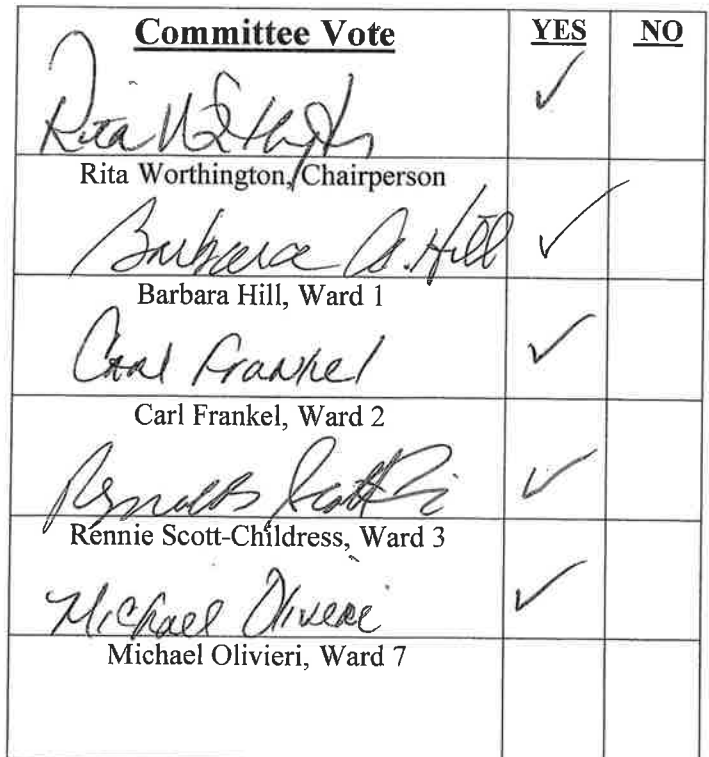 Committee Vote YES NO
Rita Worthington ✓
Rita Worthington, Chairperson
Barbara A. Hill ✓
Barbara Hill, Ward 1
Carl Frankel ✓
Carl Frankel, Ward 2
Reynolds Scott ✓
Rennie Scott-Childress, Ward 3
Michael Olivieri ✓
Michael Olivieri, Ward 7